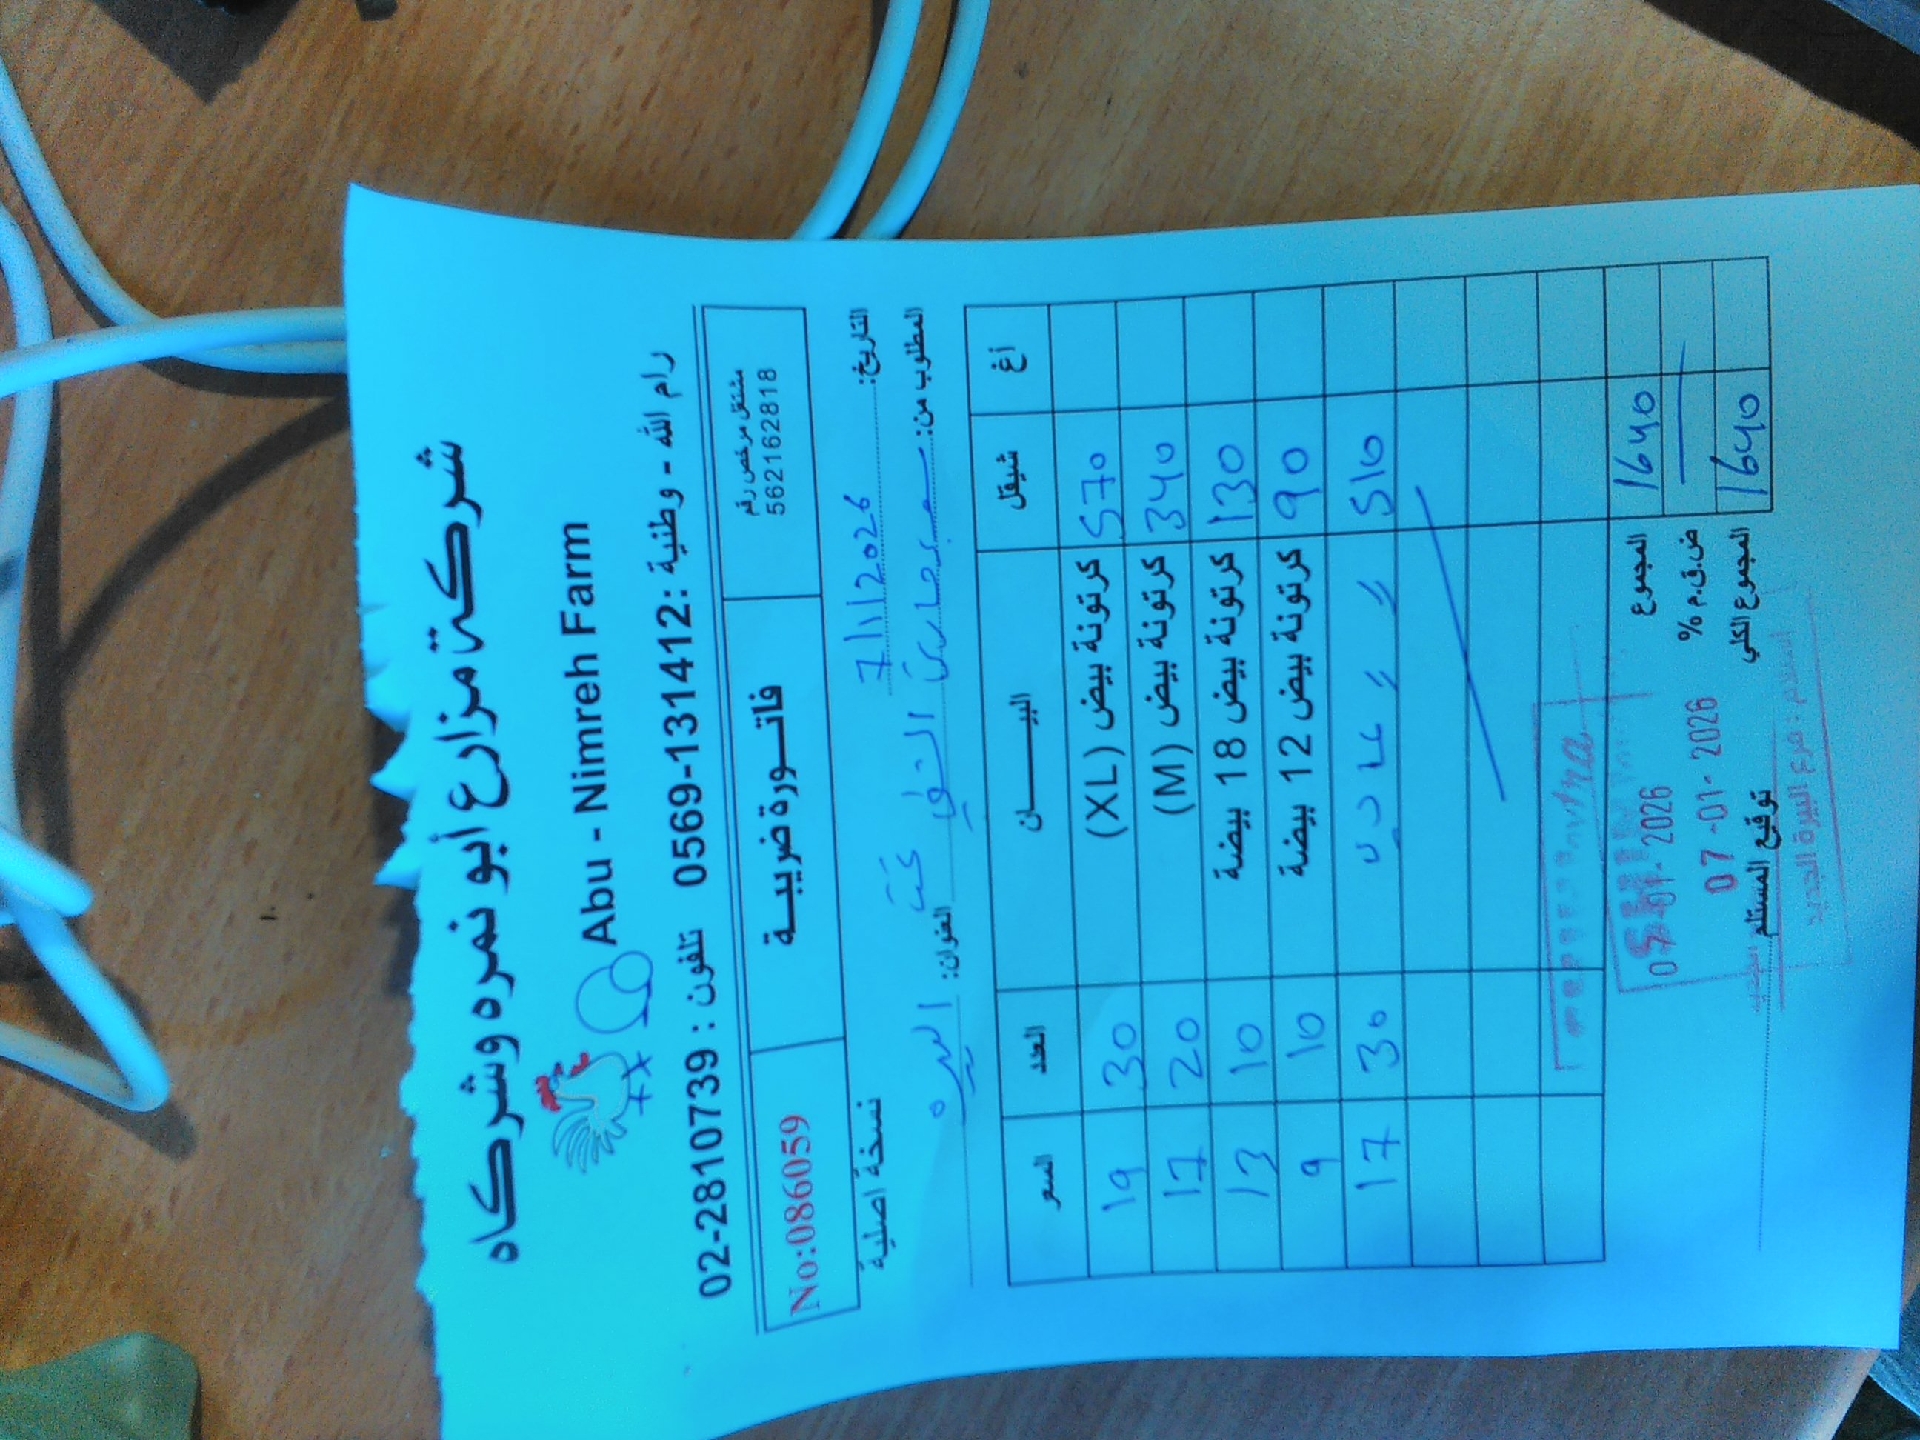 شركة مزارع أبو نمره وشركاه
Abu - Nimreh Farm
رام الله - وطنية : 0569-131412 تلفون : 02-2810739
مشتغل مرخص رقم
562162818
فاتـــورة ضريبيـــة
No:086059
التاريخ: 7/1/2026
نسخة اصلية
المطلوب من:
العنوان: البيره
السعر العدد البيـــــــان شيقل أغ
19 30 كرتونة بيض (XL) 570
17 20 كرتونة بيض (M) 340
13 10 كرتونة بيض 18 بيضة 130
9 10 كرتونة بيض 12 بيضة 90
17 30 510
المجموع 1640
ض.ق.م %
المجموع الكلي 1640
07-01-2026
07-01-2026
توقيع المستلم
فرع البيرة الجديد